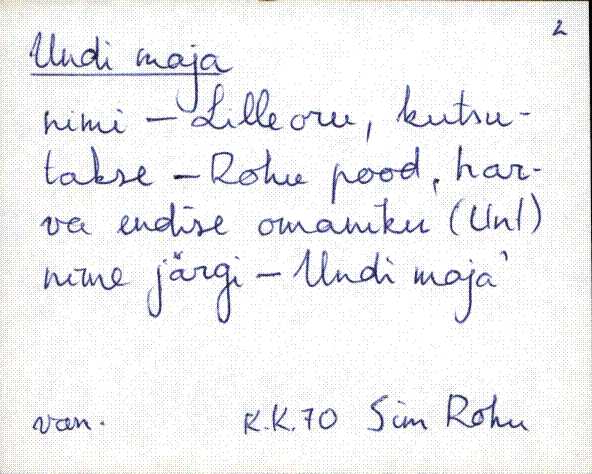 2
Undi maja
nimi – Lilleoru, kutsu-
takse – Rohu pood, har-
va endise omaniku (Unt)
nime järgi – Undi maja'
van. K.K.70 Sim Rohu